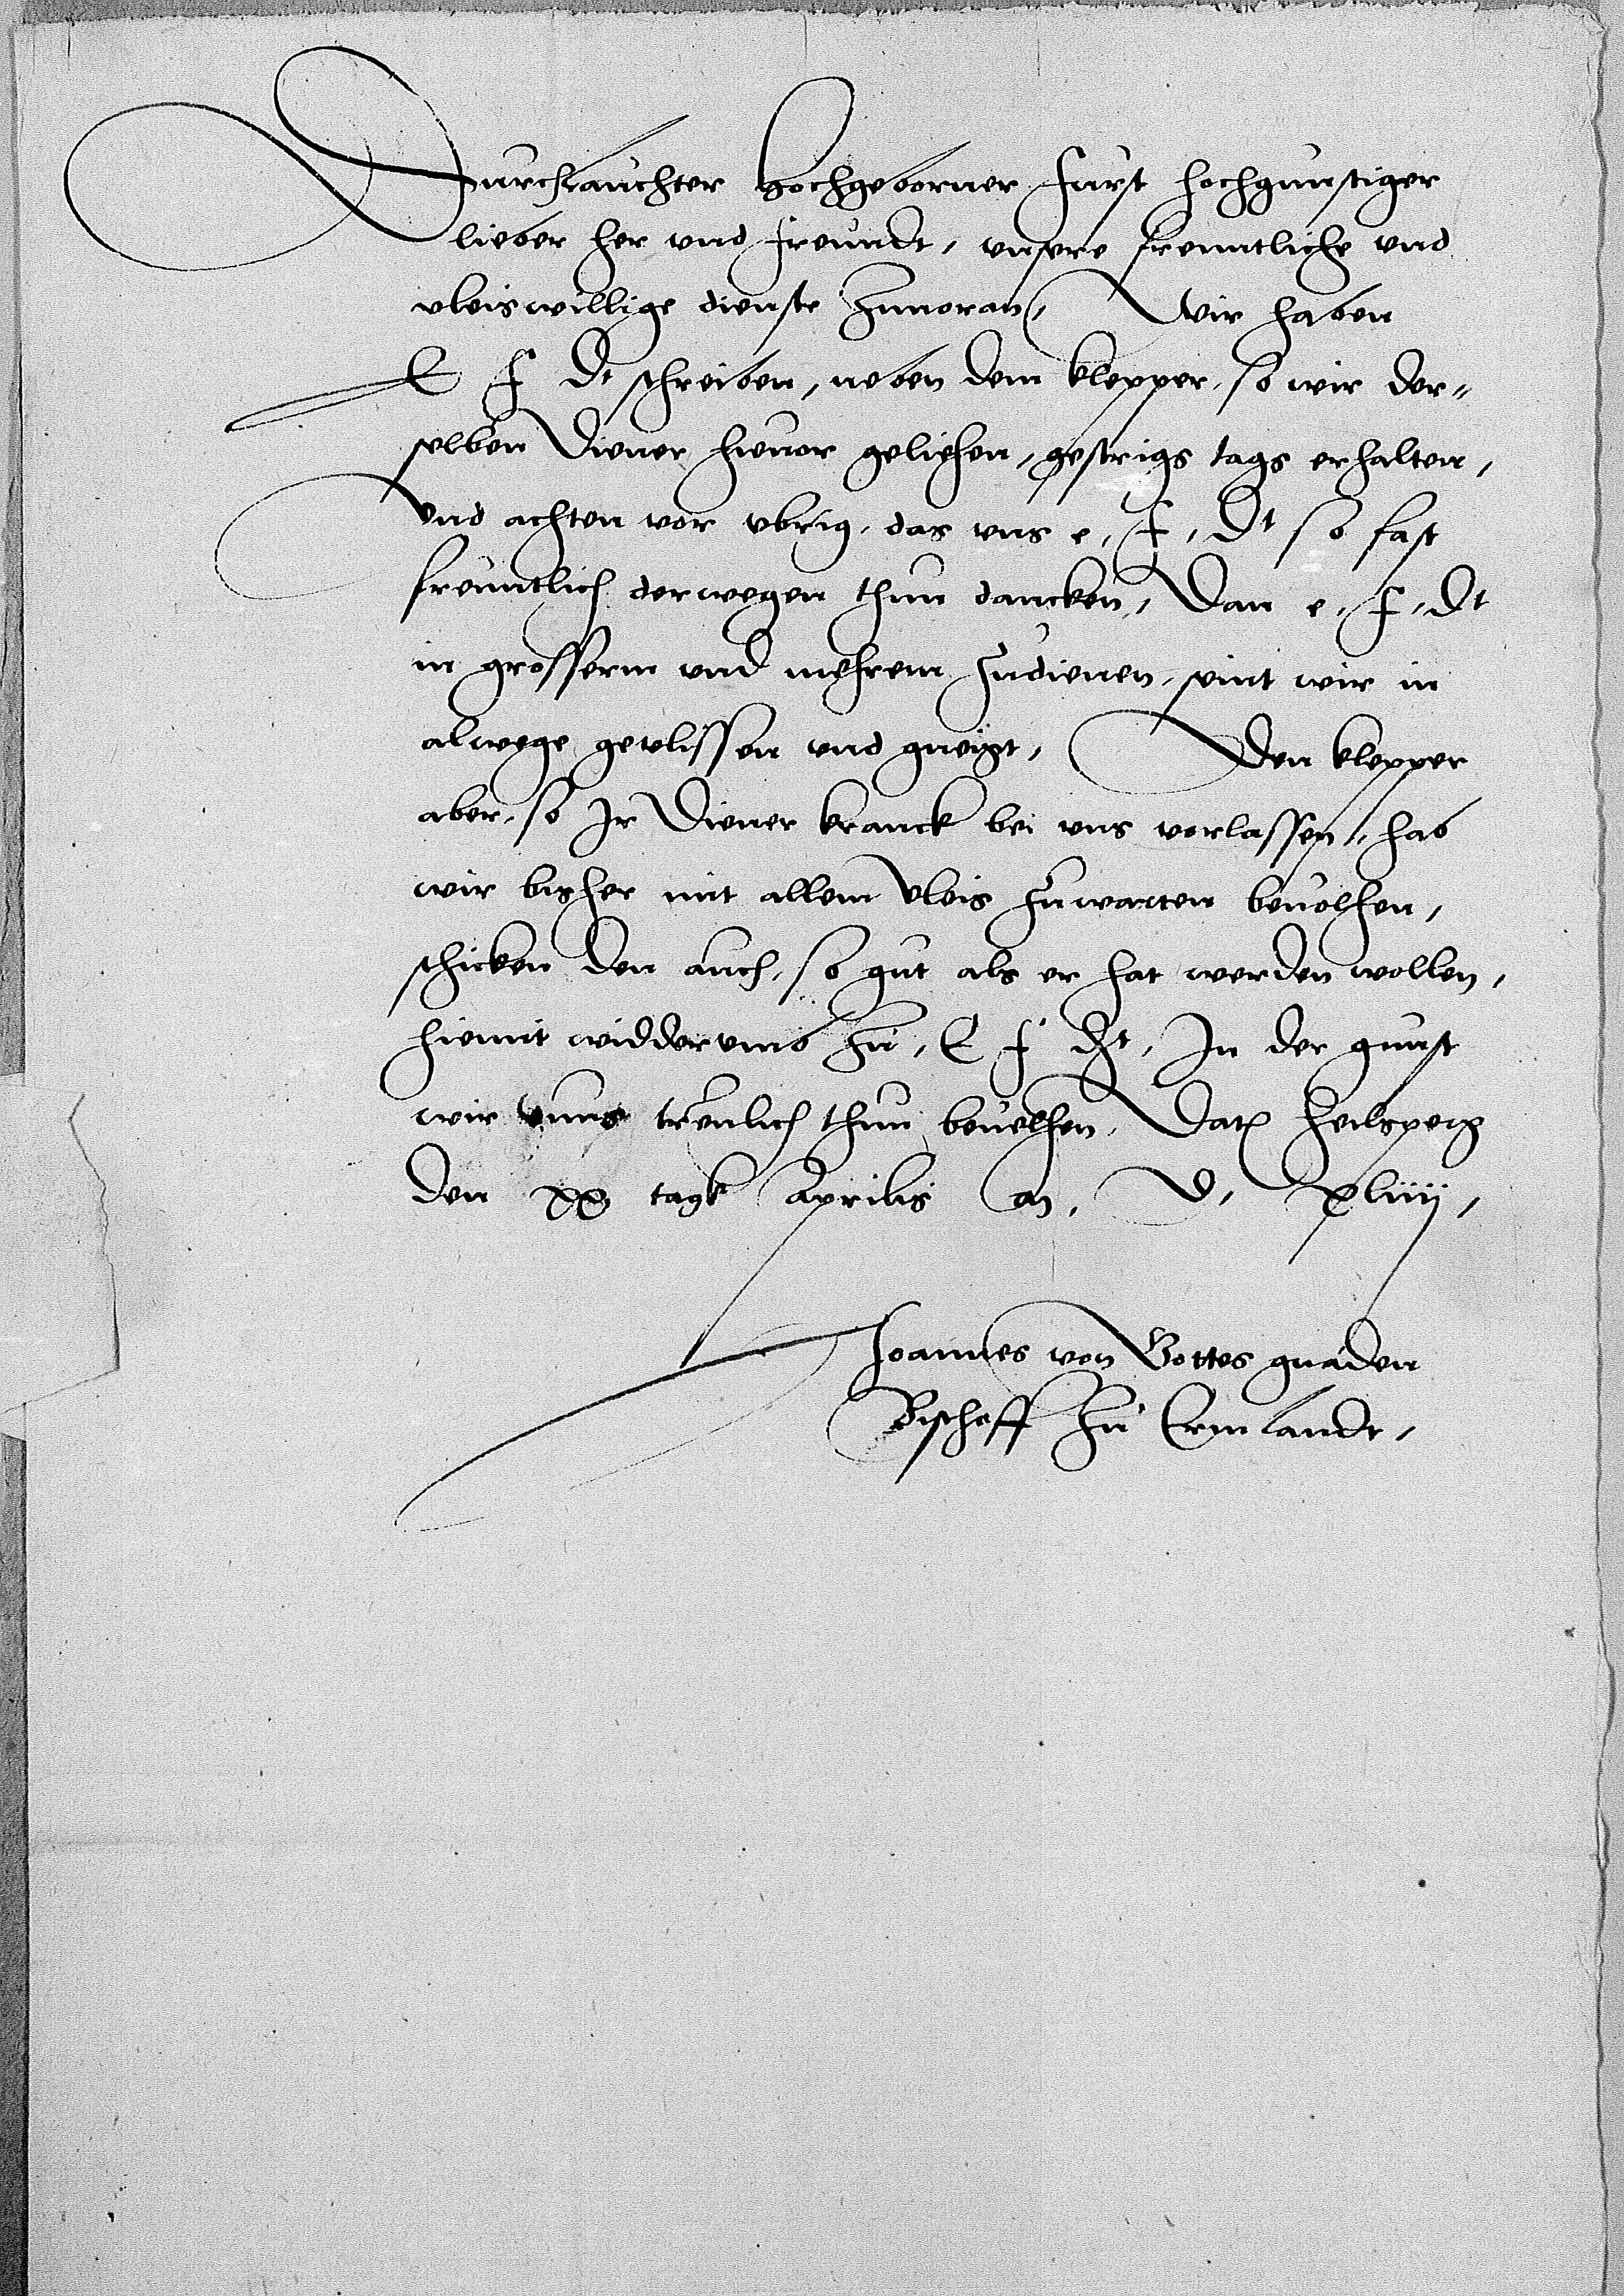 Durchlauchter hochgeborner furst hochgunstiger
lieber her vnd freundt, vnsere freuntliche vnd
vleiswillige dienste zuuoran, Wir haben
E f Dt schreiben, neben dem klepper, so wir der-
selben Diener hieuor geliehen, gestrigs tags erhalten,
Vnd achten vor vbrig, das vns e, f, Dt so fast
freuntlich derwegen thun dancken, Dan e, f, Dt
in grosserm vnd mehrem zudienen, seint wir in
alwege geulissen vnd gneigt, Den klepper
aber, so Jr Diener kranck bei vns vorlassen, hab
wir bisher mit allem vleis zuwarten beuolhen,
schicken den auch, so gut als er hat werden wollen,
hiemit widderumb zu, E f Dt, Jn der gunst
wir vnns treulich thun beuelhen, Dat heilsperg
den xx tagk Aprilis an, D, xliiij,
Joannes von Gottes gnaden
Bischoff zu Ermlandt,